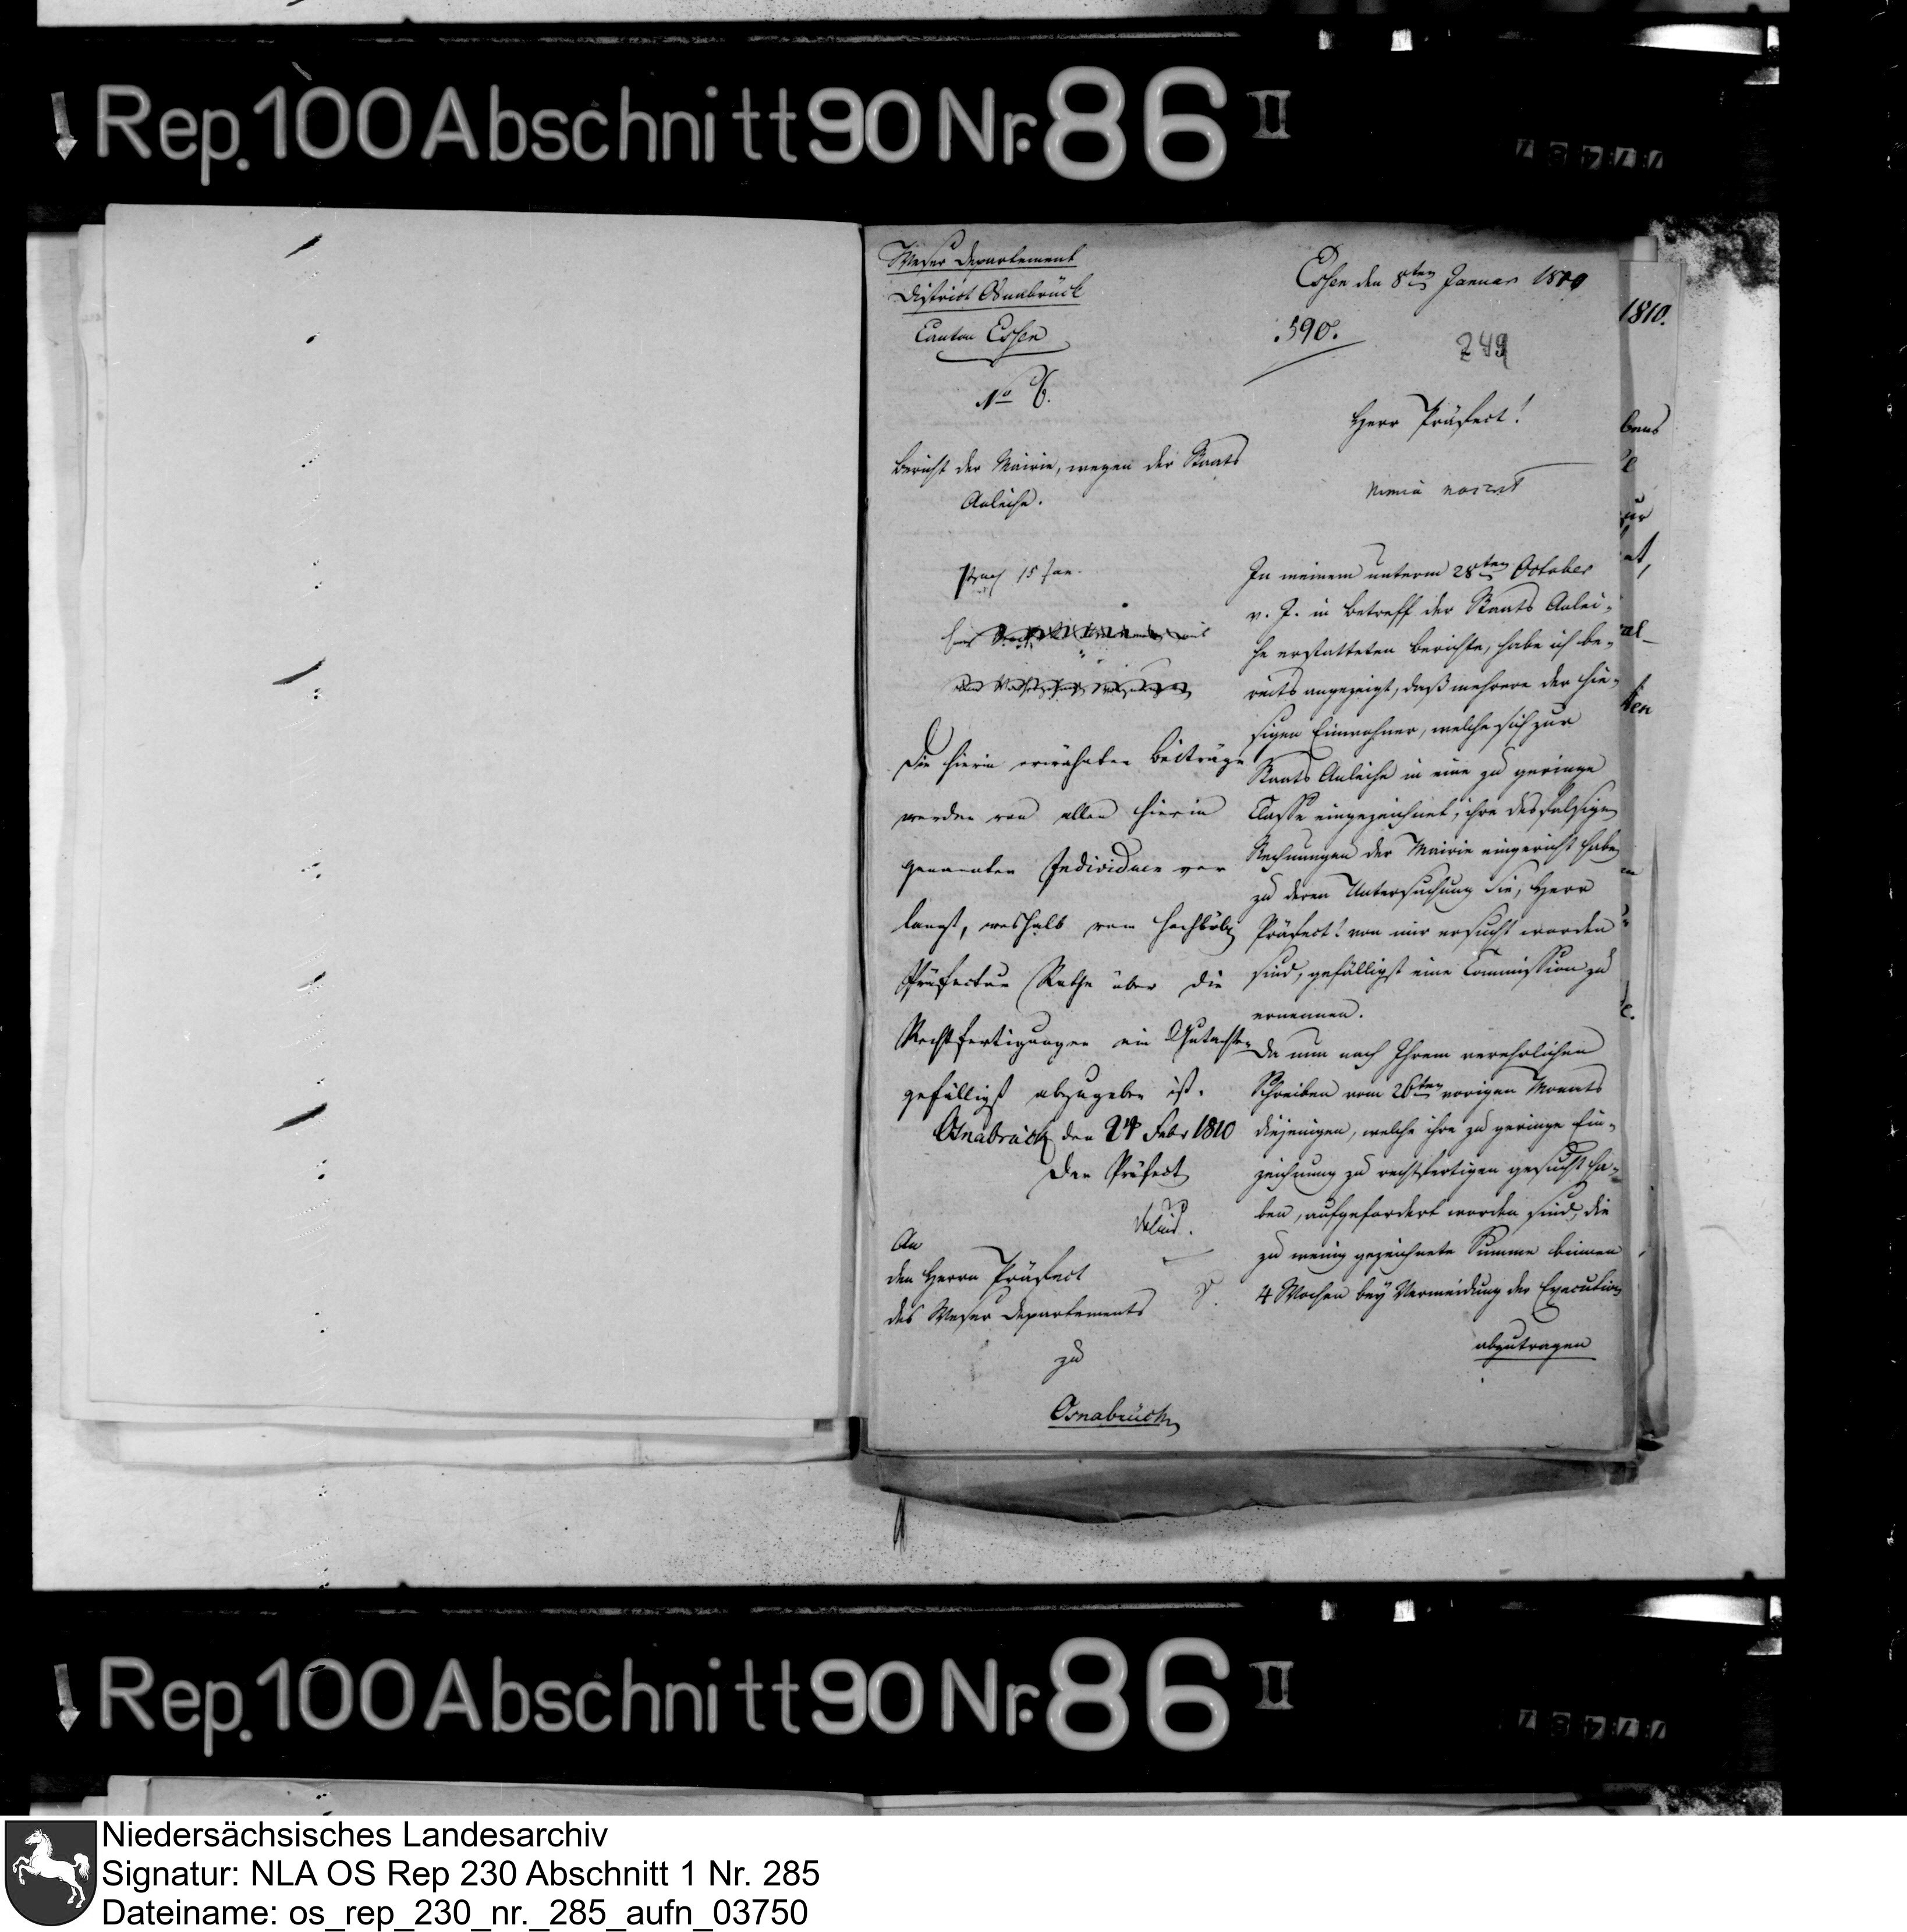 Rep. 100 Abschnitt 90 Nr. 86 II
Weser Departement
District Osnabrück
Canton Essen
No 6.
Bericht der Mairie, wegen der Staats
Anleihe.
Essen den 8ten Januar 1810
590.
249
Herr Präfect!
15 Jan.
Die hierin erwähnten Beiträge
werden von allen hierin
genannten Individuen ver
langt, weshalb vom hochlöbl
Präfectur Rathe über die
Rechtfertigungen ein Gutachten
gefälligst abzugeben ist.
Osnabrück den 24 Febr 1810
Der Präfect
An
den Herrn Präfect
des Weser Departements
zu
Osnabrück
In meinem unterm 28ten October
v. J. in Betreff der Staats Anlei-
he erstatteten Berichte, habe ich be-
reits angezeigt, daß mehrere der hie-
sigen Einwohner, welche sich zur
Staats Anleihe in eine zu geringe
Classe eingezeichnet, ihre desfalsigen
Rechnungen der Mairie eingereicht haben
zu deren Untersuchung Sie, Herr
Präfect! von mir ersucht worden
sind, gefälligst eine Commission zu
ernennen.
Da nun nach Ihrem verehrlichen
Schreiben vom 26ten vorigen Monats
diejenigen, welche ihre zu geringe Ein-
zeichnung zu rechtfertigen gesucht ha-
ben, aufgefordert worden sind, die
zu wenig gezeichnete Summe binnen
4 Wochen bey Vermeidung der Execution
abzutragen
1810.
Rep. 100 Abschnitt 90 Nr. 86 II
Niedersächsisches Landesarchiv
Signatur: NLA OS Rep 230 Abschnitt 1 Nr. 285
Dateiname: os_rep_230_nr._285_aufn_03750